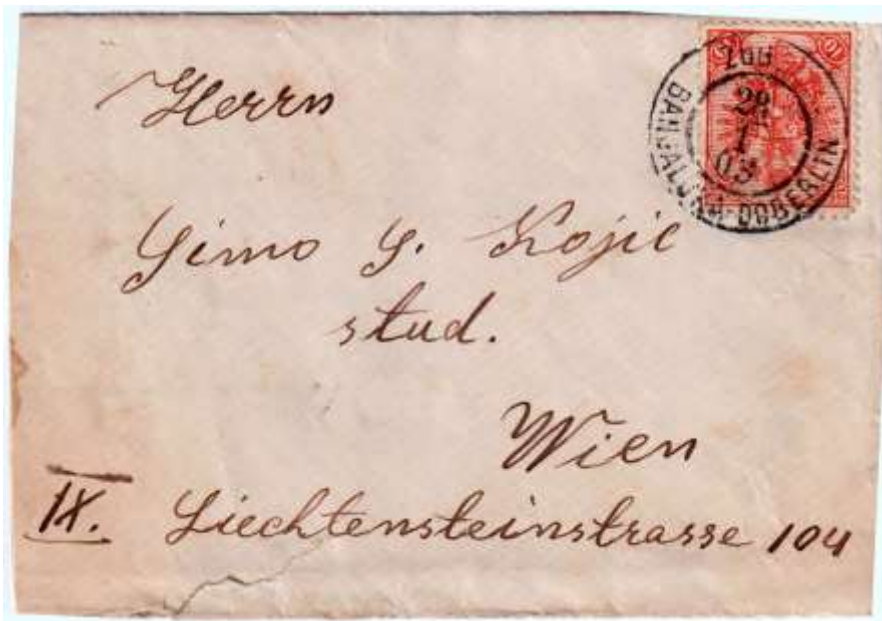 Herrn
Simo S. Kojic
stud.
Wien
IX. Liechtensteinstrasse 104
10
BANJALUKA-DOBERLIN
03